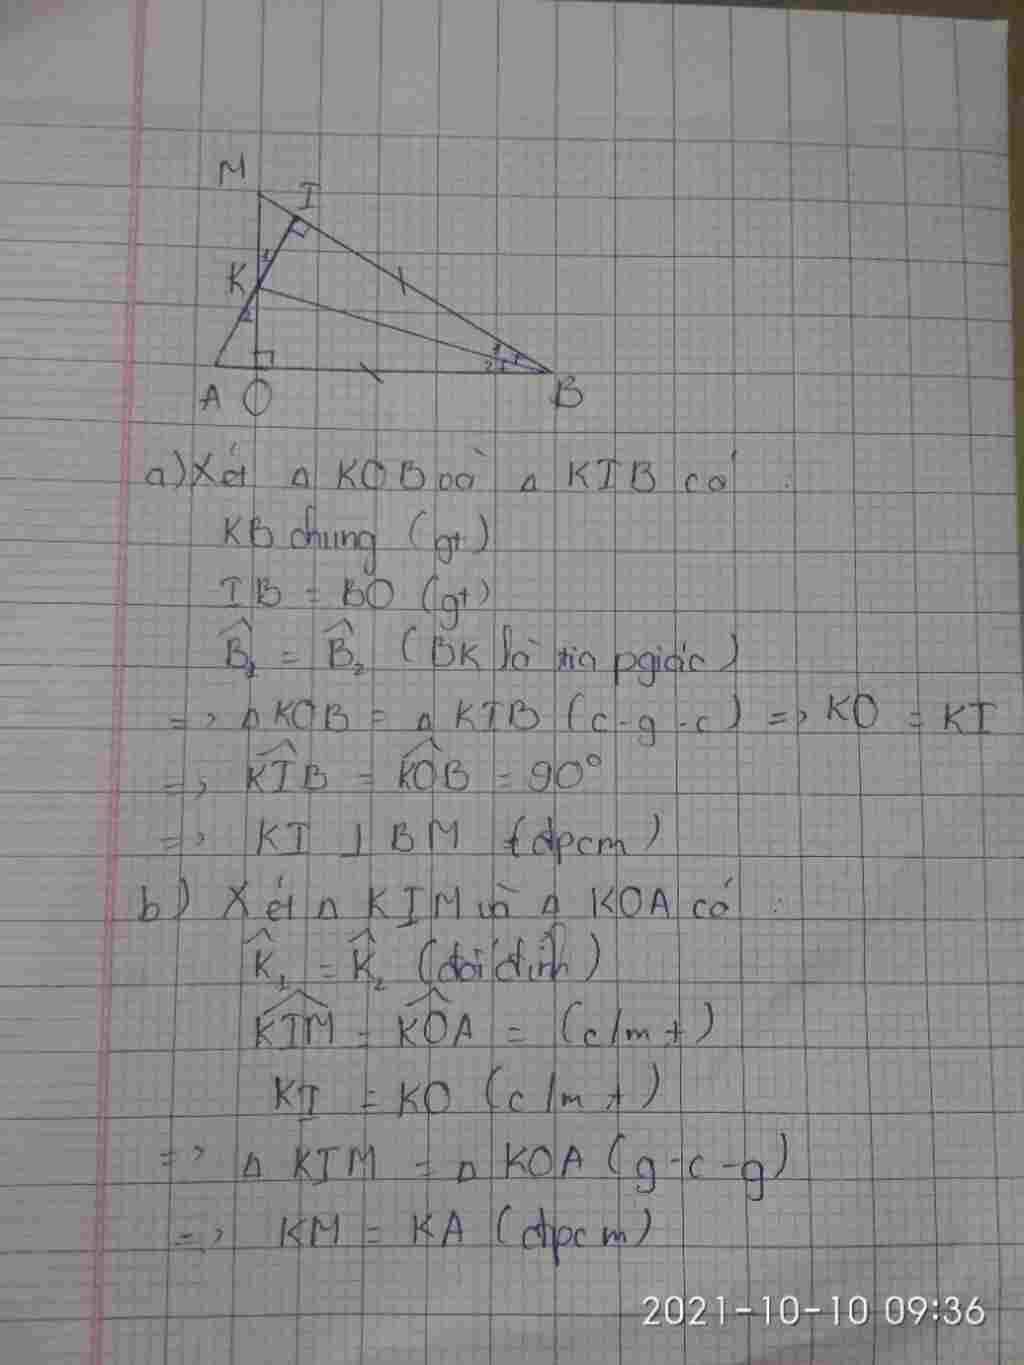 M
I
1
K
2
1
2
A O B
a) Xét Δ KOB và Δ KIB có :
KB chung (gt)
IB = BO (gt)
B̂₁ = B̂₂ (BK là tia pgiác)
=> Δ KOB = Δ KIB (c-g-c) => KO = KI
=> K̂IB = K̂OB = 90°
=> KI ⊥ BM (đpcm)
b) Xét Δ KIM và Δ KOA có :
K̂₁ = K̂₂ (đối đỉnh)
K̂IM = K̂OA = (c/m t)
KI = KO (c/m t)
=> Δ KIM = Δ KOA (g-c-g)
=> KM = KA (đpcm)
2021-10-10 09:36